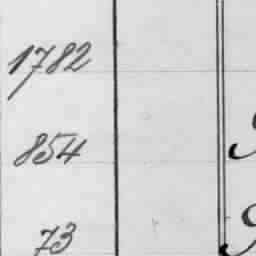 1782
854
73